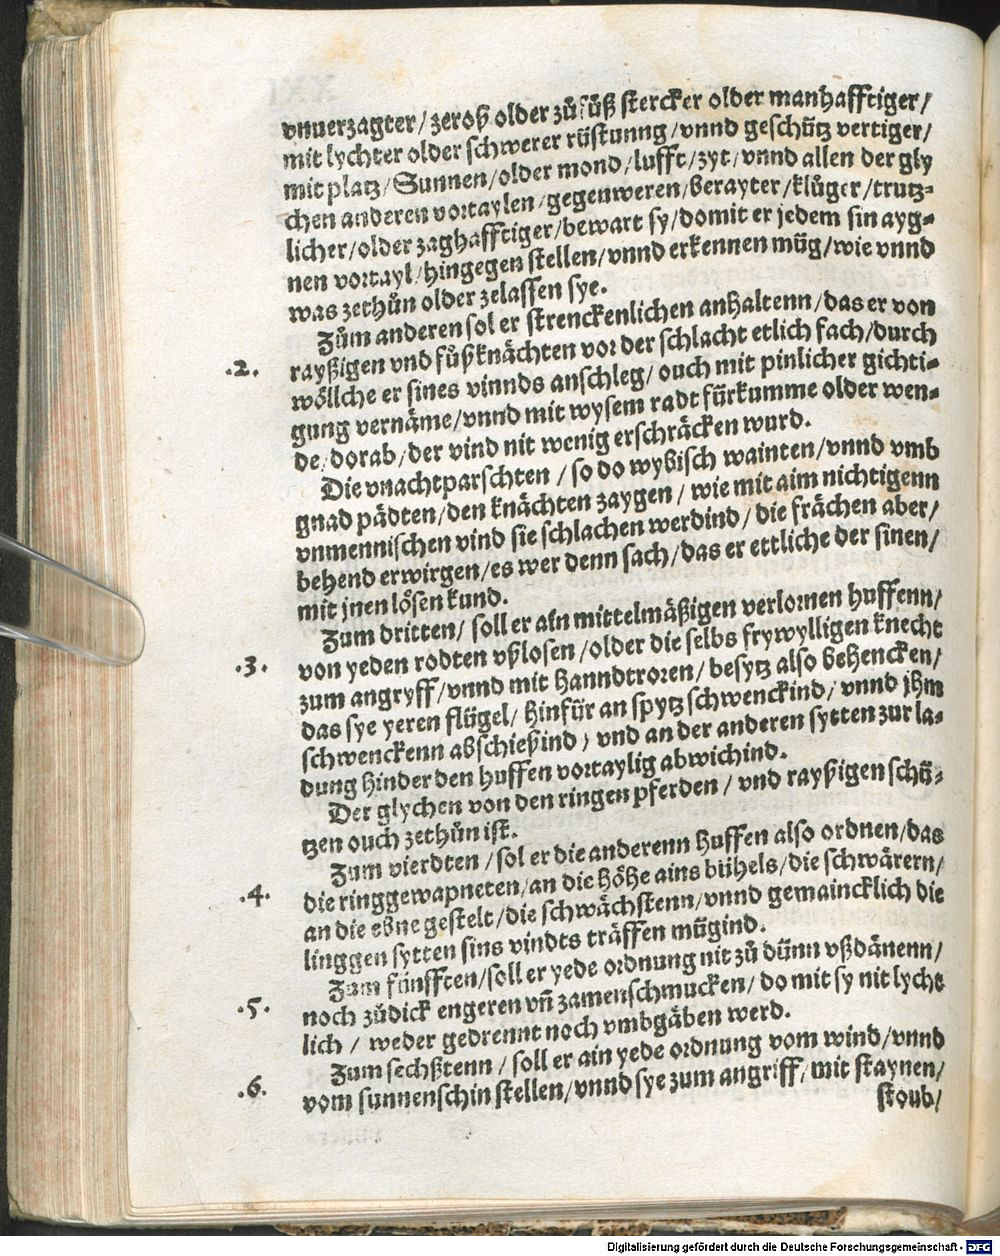 vnuerzagter/ zeroß older zů fůß stercker older manhafftiger/
mit lychter older schwerer rüstunng/vnnd geschütz vertiger/
mit platz/Sunnen/older mond/lufft/zyt/vnnd allen der gly
chen anderen vortaylen/gegenweren/berayter/klůger/trutz=
licher/older zaghafftiger/bewart sy/domit er jedem sin ayg=
nen vortayl/hingegen stellen/vnnd erkennen müg/wie vnnd
was zethůn older zelassen sye.
Zům anderen sol er strenckenlichen anhaltenn/das er von
.2. rayßigen vnd fůßknächten vor der schlacht etlich fach/durch
wöllche er sines vinnds anschleg/ouch mit pinlicher gichti=
gung vernäme/vnnd mit wysem radt fürkumme older wen=
de/dorab/der vind nit wenig erschräcken wurd.
Die vnachtparschten/so do wybisch wainten/vnnd vmb
gnad pädten/den knächten zaygen/wie mit aim nichtigenn
vnmennischen vind sie schlachen werdind/die frächen aber/
behend erwirgen/es wer denn sach/das er ettliche der sinen/
mit jnen lösen kund.
Zum dritten/soll er ain mittelmäßigen verlornen huffenn/
.3. von yeden rodten vßlosen/older die selbs frywylligen knecht
zum angryff/vnnd mit hanndtroren/besytz also behencken/
das sye yeren flügel/hinfür an spytz schwenckind/vnnd jhm
schwenckenn abschießind/vnd an der anderen sytten zur la=
dung hinder den huffen vortaylig abwichind.
Der glychen von den ringen pferden/vnd rayßigen schü=
tzen ouch zethůn ist.
Zum vierdten/sol er die anderenn huffen also ordnen/das
.4. die ringgewapneten/an die höhe ains bühels/die schwärern/
an die ebne gestelt/die schwächstenn/vnnd gemaincklich die
linggen sytten sins vindts träffen mügind.
Zum fünfften/soll er yede ordnung nit zů dünn vßdänenn/
.5. noch zůdick engeren vñ zamenschmucken/do mit sy nit lycht
lich/weder gedrennt noch vmbgäben werd.
Zum sechßtenn/soll er ain yede ordnung vom wind/vnnd
.6. vom sunnenschin stellen/vnnd sye zum angriff/mit staynen/
stoub/
Digitalisierung gefördert durch die Deutsche Forschungsgemeinschaft - DFG